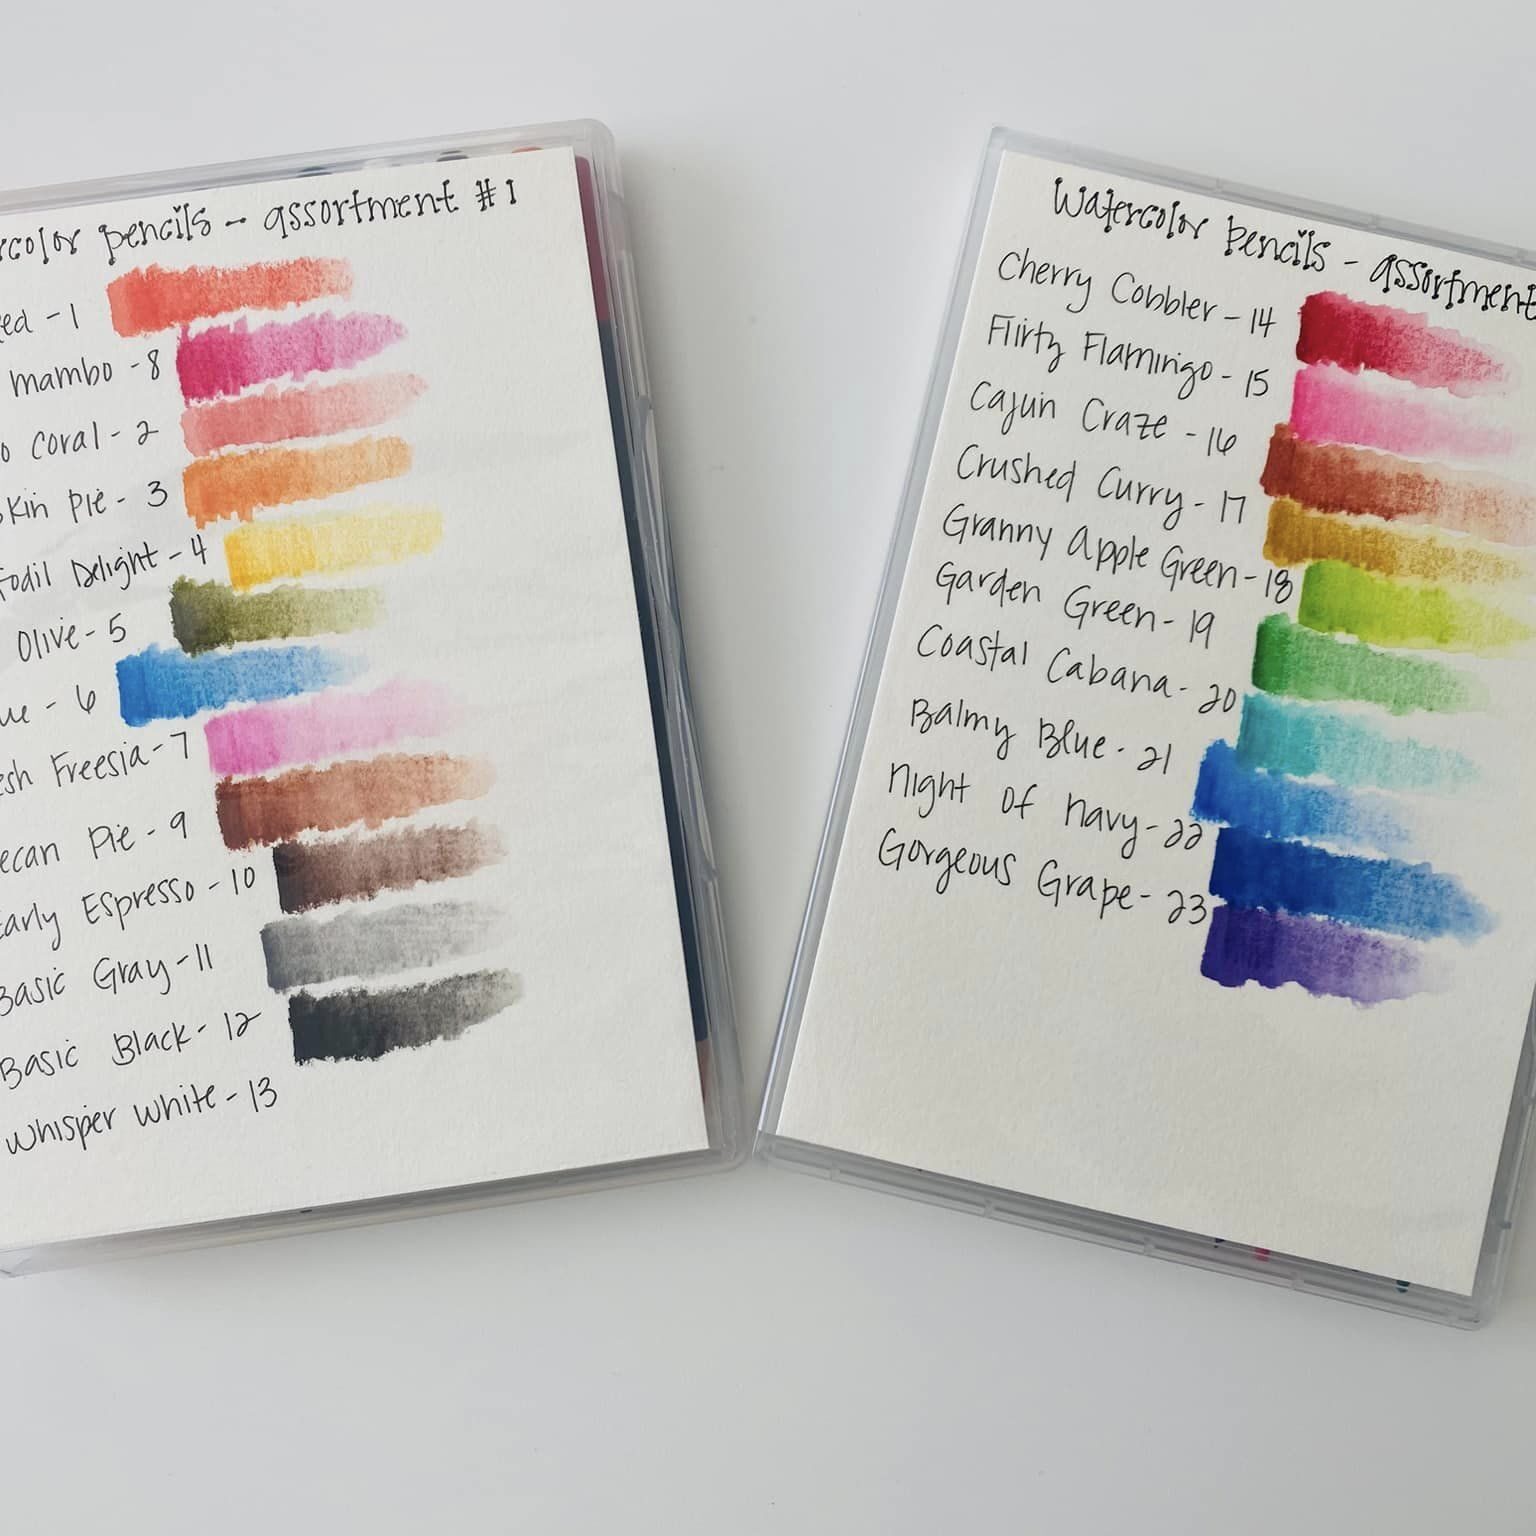 pencils - assortment #1
- 1
mambo - 8
Coral - 2
Pie - 3
Delight - 4
Olive - 5
- 6
Freesia - 7
Pie - 9
Early Espresso - 10
Basic Gray - 11
Basic Black - 12
Whisper White - 13
Watercolor Pencils - assortment
Cherry Cobbler - 14
Flirty Flamingo - 15
Cajun Craze - 16
Crushed Curry - 17
Granny Apple Green - 18
Garden Green - 19
Coastal Cabana - 20
Balmy Blue - 21
Night of Navy - 22
Gorgeous Grape - 23